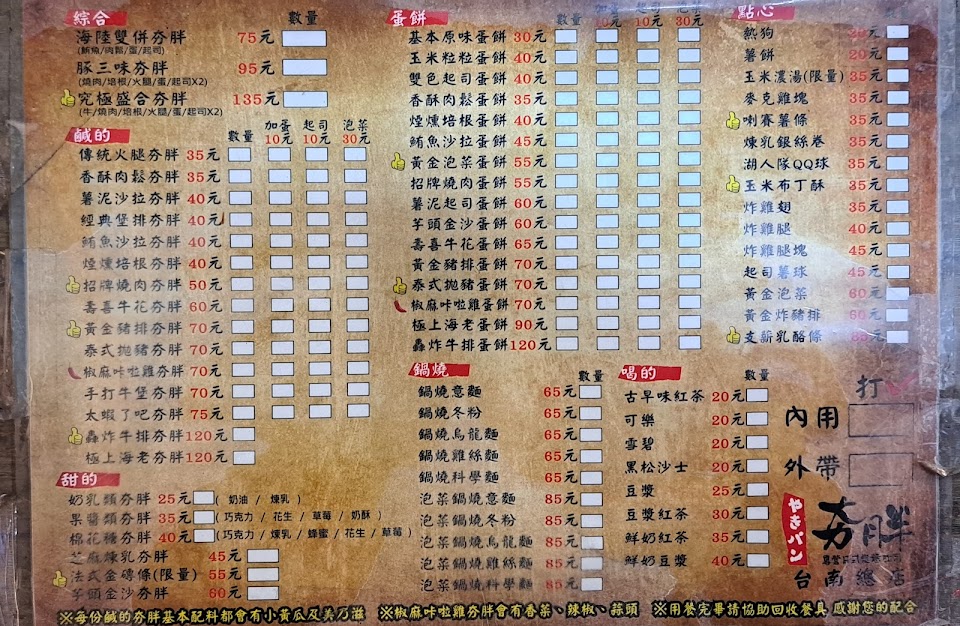 綜合 數量
海陸雙併夯胖 75元
(鮪魚/肉鬆/蛋/起司)
豚三味夯胖 95元
(燒肉/培根/火腿/蛋/起司X2)
究極盛合夯胖 135元
(牛/燒肉/培根/火腿/蛋/起司X2)
鹹的 數量 加蛋10元 起司10元 泡菜30元
傳統火腿夯胖 35元
香酥肉鬆夯胖 35元
薯泥沙拉夯胖 40元
經典堡排夯胖 40元
鮪魚沙拉夯胖 40元
煙燻培根夯胖 40元
招牌燒肉夯胖 50元
壽喜牛花夯胖 60元
黃金豬排夯胖 70元
泰式拋豬夯胖 70元
椒麻咔啦雞夯胖 70元
手打牛堡夯胖 70元
太蝦了吧夯胖 75元
轟炸牛排夯胖 120元
極上海老夯胖 120元
甜的
奶乳類夯胖 25元 ( 奶油 / 煉乳 )
果醬類夯胖 35元 ( 巧克力 / 花生 / 草莓 / 奶酥 )
棉花糖夯胖 40元 ( 巧克力 / 煉乳 / 蜂蜜 / 花生 / 草莓 )
芝麻煉乳夯胖 45元
法式金磚條(限量) 55元
芋頭金沙夯胖 60元
蛋餅 數量 10元 10元 30元
基本原味蛋餅 30元
玉米粒粒蛋餅 40元
雙色起司蛋餅 40元
香酥肉鬆蛋餅 35元
煙燻培根蛋餅 40元
鮪魚沙拉蛋餅 45元
黃金泡菜蛋餅 55元
招牌燒肉蛋餅 55元
薯泥起司蛋餅 60元
芋頭金沙蛋餅 60元
壽喜牛花蛋餅 65元
黃金豬排蛋餅 70元
泰式拋豬蛋餅 70元
椒麻咔啦雞蛋餅 70元
極上海老蛋餅 90元
轟炸牛排蛋餅 120元
鍋燒 數量
鍋燒意麵 65元
鍋燒冬粉 65元
鍋燒烏龍麵 65元
鍋燒雞絲麵 65元
鍋燒科學麵 65元
泡菜鍋燒意麵 85元
泡菜鍋燒冬粉 85元
泡菜鍋燒烏龍麵 85元
泡菜鍋燒雞絲麵 85元
泡菜鍋燒科學麵 85元
喝的 數量
古早味紅茶 20元
可樂 20元
雪碧 20元
黑松沙士 20元
豆漿 25元
豆漿紅茶 30元
鮮奶紅茶 35元
鮮奶豆漿 40元
點心
熱狗
薯餅 20元
玉米濃湯(限量) 35元
麥克雞塊 35元
喇賽薯條 35元
煉乳銀絲卷 35元
湖人隊QQ球 35元
玉米布丁酥 35元
炸雞翅 35元
炸雞腿 40元
炸雞腿塊 45元
起司薯球 45元
黃金泡菜 60元
黃金炸豬排 60元
支薪乳酪條
打
內用
外帶
やきパン
夯胖
台南總店
※每份鹹的夯胖基本配料都會有小黃瓜及美乃滋 ※椒麻咔啦雞夯胖會有香菜、辣椒、蒜頭 ※用餐完畢請協助回收餐具 感謝您的配合